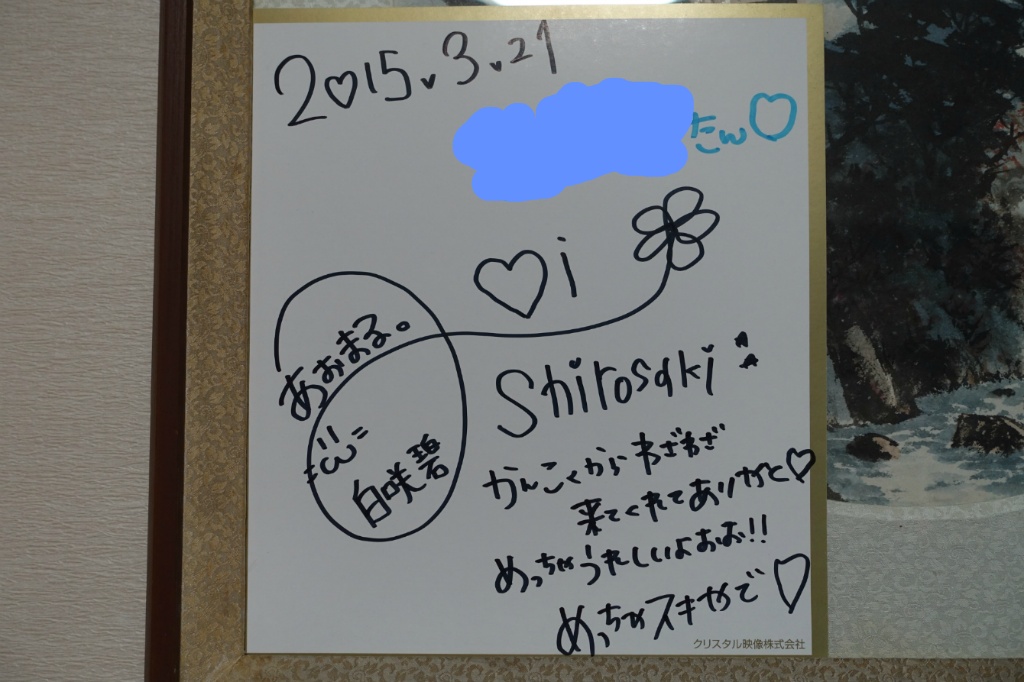 2♡15.3.21
たん♡
♡i
Shirosaki
あおまる。
白咲碧
かんこくからわざわざ
来てくれてありがと♡
めっちゃうれしいよおお!!
めっちゃスキやで♡
クリスタル映像株式会社